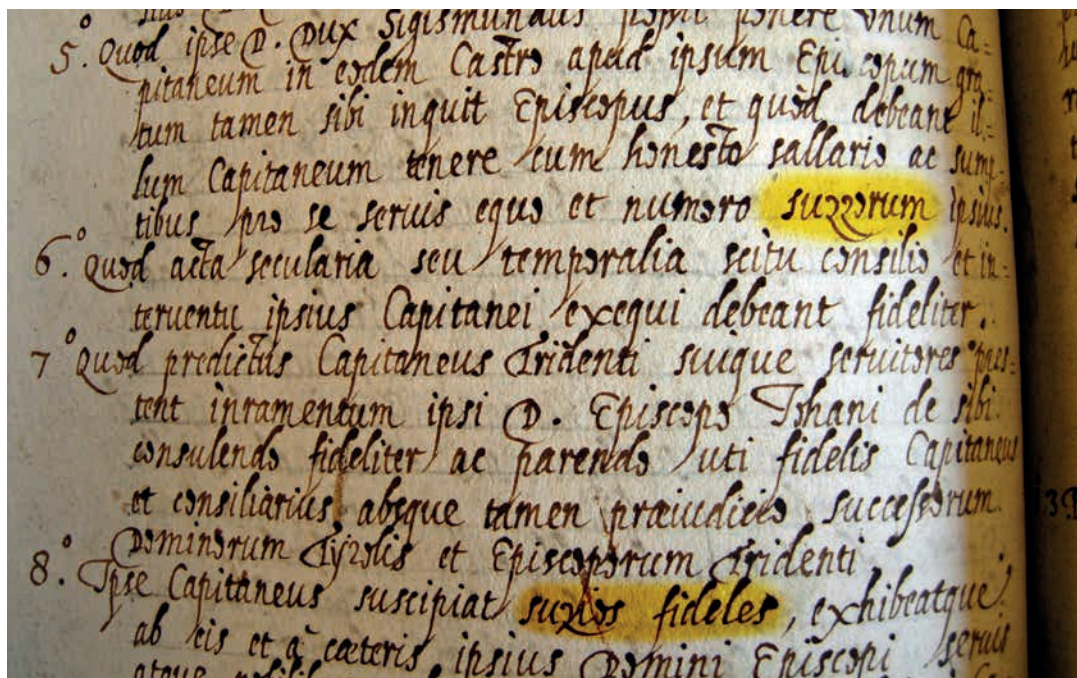 5.º Quod ipse D. Dux Sigismundus ponere unum Ca=
pitaneum in eodem Castro apud ipsum Episcopum gra=
tum tamen sibi inquit Episcopus, et quòd debeant il=
lum Capitaneum tenere cum honesto sallario ac sump=
tibus pro se servis equo et numero suzzorum ipsius.
6.º Quod acta secularia seu temporalia scitu consilio et in=
teruentu ipsius Capitanei exequi debeant fideliter.
7º Quod predictus Capitaneus Tridenti suique seruitores pres=
tent inramentum ipsi D. Episcopo Johani de sibi
consulendo fideliter ac parendo uti fidelis Capitaneus
et consiliarius absque tamen præiudicio successorum
Dominorum Tyrolis et Episcoporum Tridenti.
8.º Ipse Capitaneus suscipiat fideles, exhibeatque
ab eis et à cæteris ipsius Domini Episcopi seruis
atque